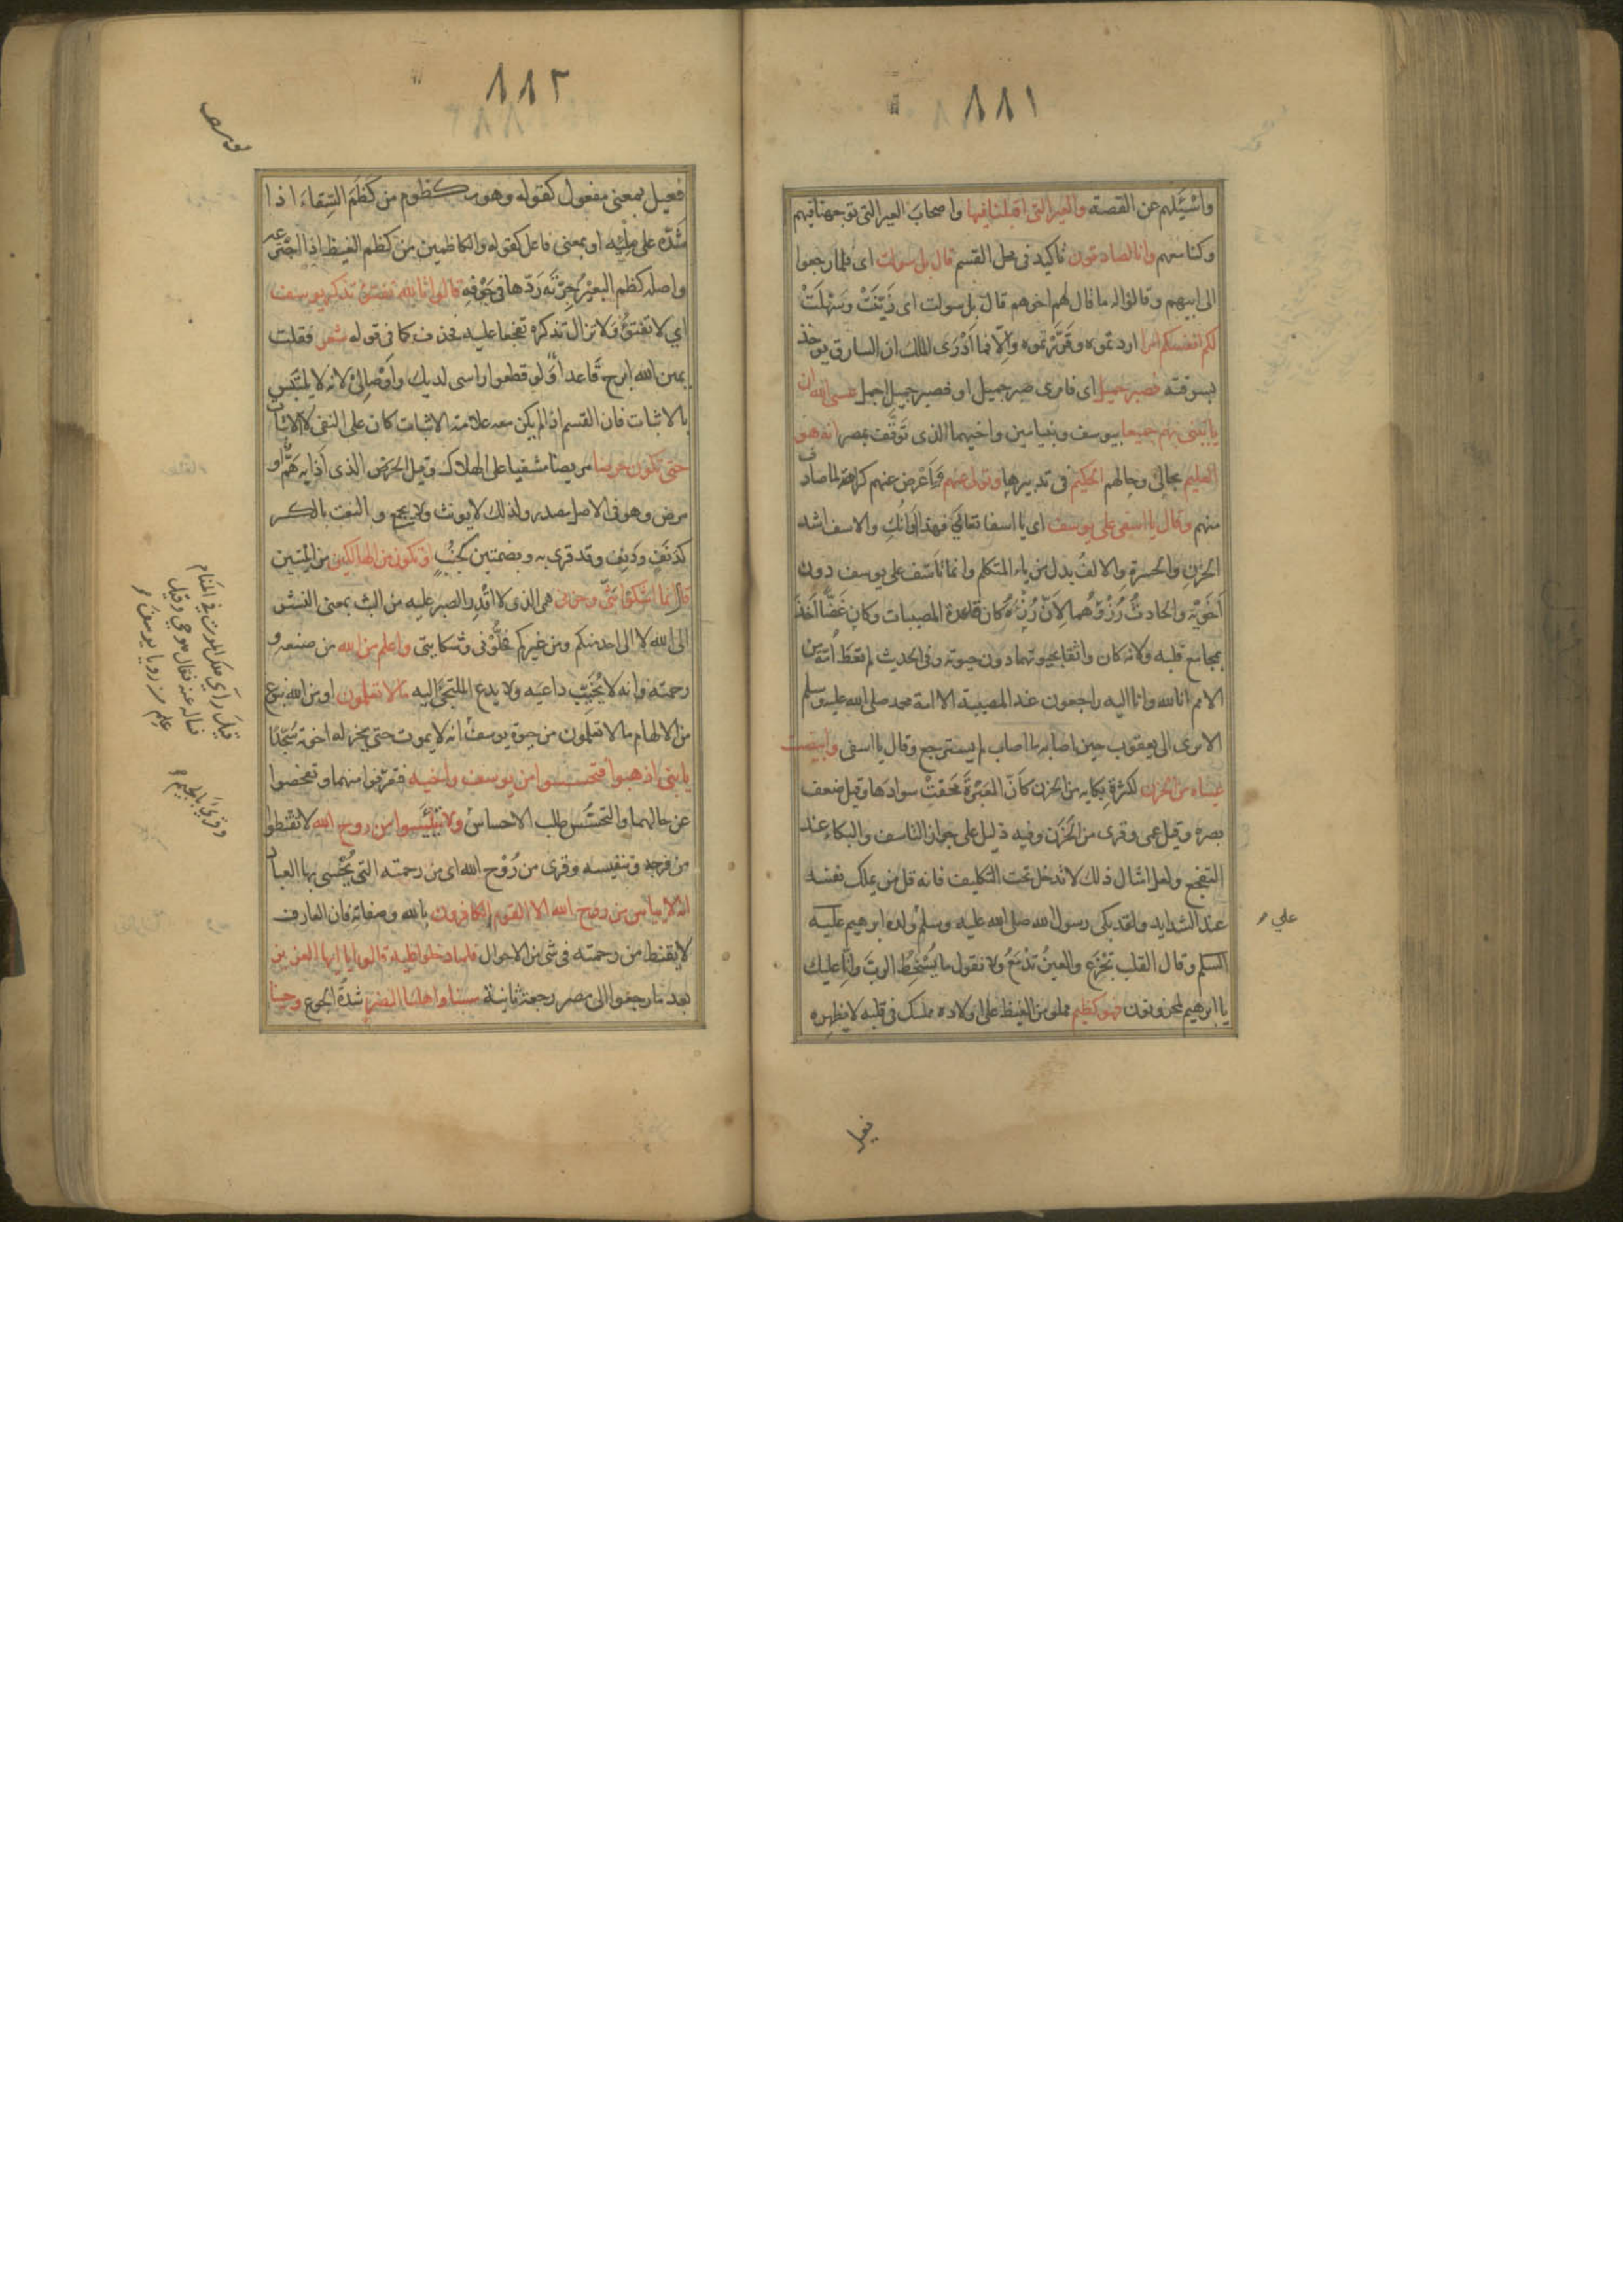 ٨٨١
واسئلهم عن القصة والعير التى اقبلنا فيها واصحاب العير التى توجهنا فيهم
وكنا معهم وانا لصادقون تأكيد فى محل القسم قال بل سولت اى فلما رجعوا
الى ابيهم وقالوا له ما قال لهم اخوهم قال بل سولت اى زَيّنَتْ وسَهّلَتْ
لكم انفسكم امرا اردتموه وقرّرتموه والّا فما اَدْرَى الملك ان السارق يوخذ
بسرقته فصبر جميل اى فامرى صبر جميل او فصبر جميل اجمل عسى الله ان
ياتينى بهم جميعا بيوسف وبنيامين واخيهما الذى تَوَقَّف بمصر انه هو
العليم بحالى وحالهم الحكيم فى تدبيرها وتولى عنهم فاَعْرض عنهم كراهة لما صادف
منهم وقال يا اسفى على يوسف اى يا اسفا تعالَى فهذا اَوانُكِ والاسف اشد
الحزن والحسرة والالفُ بدل من ياء المتكلم وانما تاَسّف على يوسف دون
اَخَوَيْه والحادثُ رُزْؤُهما لاَنّ رُزْءَه كان قاعدة المصيبات وكان غَضًّا آخذًا
بمجامع قلبه ولانه كان واثقا بحيوتهما دون حيوته وفى الحديث لم تعط امّة من
الامم انا لله وانا اليه راجعون عند المصيبة الا امة محمد صلى الله عليه وسلم
الا ترى الى يعقوب حين اصابه ما اصاب لم يسترجع وقال يا اسفى وابيضت
عيناه من الحزن لكثرة بكايه من الحزن كاَنّ العَبْرَةَ مَحَقَتْ سوادَها وقيل ضعف
بصره وقيل عمى وقرى من الحَزَن وفيه دليل على جواز التاسف والبكاء عند
التفجع ولعل امثال ذلك لا تدخل تحت التكليف فانه قل من يملك نفسه
عند الشدايد ولقد بكى رسول الله صلى الله عليه وسلم ولده ابرهيم عليه
السلم وقال القلب تجْزَع والعينُ تدْمَعُ ولا نقول ما يُسْخِطُ الربّ وانّا عليك
يا ابرهيم لمحزونون فهو كظيم مملو من الغيظ على اولاده ممسك فى قلبه لا يظهره
على
فعيل
٨٨٢
يوسف
فعيل بمعنى مفعول كقوله وهو مكظوم من كَظَمَ السِّقاءَ اذا
شَدّه على مِلْئِه او بمعنى فاعل كقوله والكاظمين من كظم الغيظ اذا اجْتَرَعه
واصله كظم البعيرُ جِرّتَه رَدّها فى جَوْفِهِ قالوا تالله تفتؤ تذكر يوسف
اى لا تفتؤُ ولا تزال تذكره تفجعا عليه فحذف كما فى قوله شعر فقلت
يمين الله ابرح قاعدا ولو قطعوا راسى لديك واَوْصالِى لانه لا يلتبس
بالاثبات فان القسم اذا لم يكن معه علامة الاثبات كان على النفى لا الاثبات
حتى تكون حرضا مريضا مشفيا على الهلاك وقيل الحرض الذى اَذابه هَمٌّ او
مرض وهو فى الاصل مصدر ولذلك لا يونث ولا يجمع والنعت بالكسر
كدَنَفٍ ودَنِفٍ وقد قرى به وبضمتين كجُنُبٍ او تكون من الهالكين من الميّتين
قال انما اشكوا بثى وحزنى همى الذى لا اَقْدِر الصبر عليه من البث بمعنى النشر
الى الله لا الى احد منكم ومن غيركم فخَلّوْنى وشكايتى واعلم من الله من صنعه و
رحمته وانه لا يُخَيّب داعيَه ولا يدع الملتجئ اليه ما لا تعلمون او من الله بنوع
من الالهام ما لا تعلمون من حيوة يوسف انه لا يموت حتى يخر له اخوته سُجّدًا
يا بنى اذهبوا فتحسسوا من يوسف واخيه فتعرّفوا منهما وتفحصوا
عن حالهما والتحسّس طلب الاحساس ولا تيئسوا من روح الله لا تقنطوا
من فرجه وتنفيسه وقرى من رُوْح الله اى من رحمته التى يُحْيى بها العباد
انه لا يياس من روح الله الا القوم الكافرون بالله وصفاته فان العارف
لا يقنط من رحمته فى شى من الاحوال فلما دخلوا عليه قالوا يا ايها العزيز
بعد ما رجعوا الى مصر رجعة ثانية مسنا واهلنا الضر شدةُ الجوع وجئنا
قيل رأى ملك الموت فى المنام
فساله عنه فقال هو حى وقيل
علم من رويا يوسف
وقرئ بالجيم